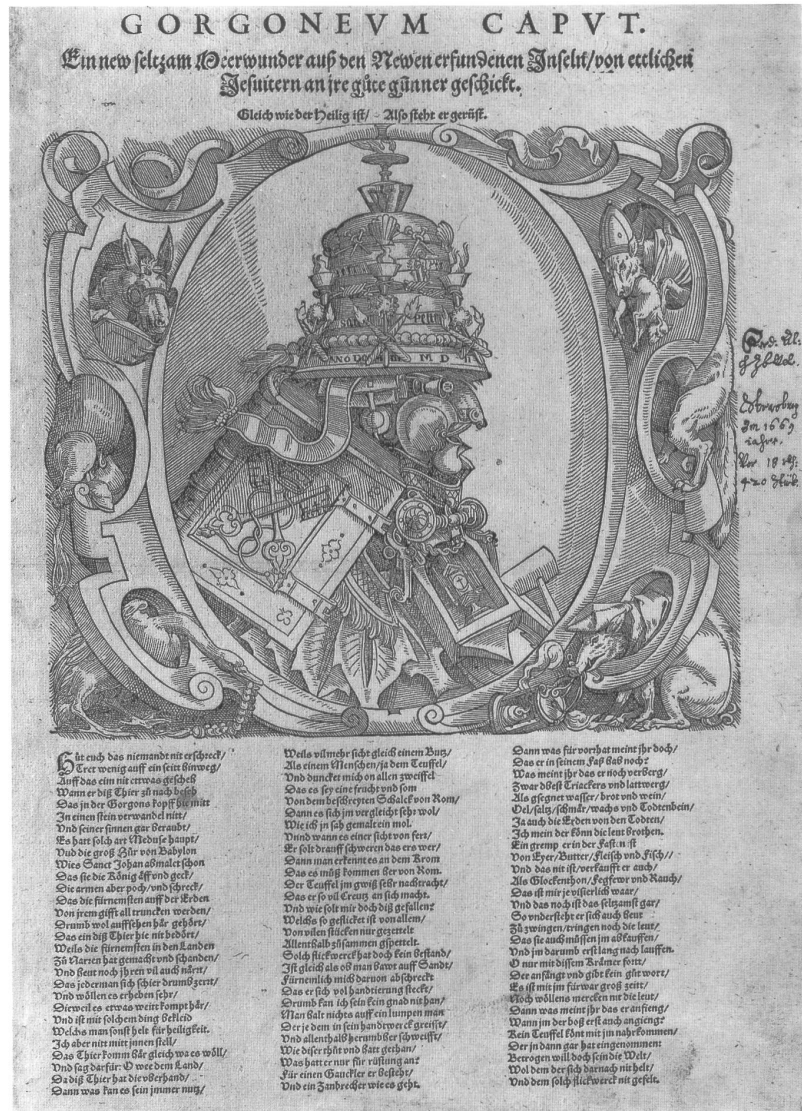 GORGONEVM CAPVT.
Ein new seltzam Meerwunder auß den Newen erfundenen Inseln/von ettlichen
Jesuitern an jre gůte günner geschickt.
Gleich wie der Heilig ist/ Also steht er gerüst.
ANO DO M D
Hüt euch das niemandt nit erschreck/
Tret wenig auff ein seitt hinweg/
Auff das eim nit ettwas gescheh
Wann er diß Thier zů nach beseh
Das jn der Gorgons kopff hie mitt
In einen stein verwandel nitt/
Vnd seiner sinnen gar beraubt/
Es hatt solch art Meduse haupt/
Vnd die groß Hůr von Babylon
Wies Sanct Johan abmalet schon
Das sie die König äff vnd geck/
Die armen aber poch/vnd schreck/
Das die fürnemsten auff der Erden
Von jrem gifft all truncken werden/
Drumb wol auffsehen här gehört/
Das ein diß Thier hie nit bedört/
Weils die fürnemsten in den Landen
Zů Narren hat gemacht vnd schanden/
Vnd heut noch jhren vil auch närrt/
Das jederman sich schier drumb zerrt/
Vnd wöllen es erheben sehr/
Dieweil es etwas weitt kompt här/
Vnd ist mit solchen ding bekleid
Welchs man sonst helt für heiligkeit.
Ich aber nitt mitt jnnen stell/
Das Thier komm här gleich wa es wöll/
Vnd sag darfür: O wee dem Land/
Da diß Thier hat die vberhand/
Dann was kan es sein jmmer nutz/
Weils vilmehr sicht gleich einem Butz/
Als einem Menschen/ja dem Teuffel/
Vnd dunckt mich on allen zweiffel
Das es sey eine frucht vnd som
Von dem beschreyten Schalck von Rom/
Dann es sich jm vergleicht sehr wol/
Wie ich jn sah gemalt ein mol.
Vnnd wann es einer sicht von fert/
Er solt drauff schweren das ers wer/
Dann man erkennt es an dem Krom
Das es můß kommen her von Rom.
Der Teuffel jm gwiß sehr nachtracht/
Das er so vil Creutz an sich macht.
Vnd wie solt mir doch diß gefallen?
Welchs so geflicket ist von allem/
Von vilen stücken nur gezettelt
Allenthalb zůsammen gspettelt.
Solch flickwerck hat doch kein bestand/
Ist gleich als ob man bawt auff Sandt/
Fürnemlich mich daruon abschreckt
Das er sich vol handtierung steckt/
Drumb kan ich sein kein gnad nit han/
Man halt nichts auff ein lumpen man
Der je dem in sein handwerck greifft/
Vnd allenthalb herumbher schweifft/
Wie diser thůt vnd hatt gethan/
Was hatt er nur für rüstung an?
Für einen Gauckler er besteht/
Vnd ein Zanbrecher wie es geht.
Dann was für vorrhat meint jhr doch/
Das er in seinem Faß hab noch?
Was meint jhr das er noch verberg/
Zwar dhest Triackers vnd lattwerg/
Als gsegnet wasser/ brot vnd wein/
Oel/saltz/schmär/wachs vnd Todtenbein/
Ja auch die Erden von den Todten/
Ich mein der könn die leut brothen.
Ein gremp er in der Fasten ist
Von Eyer/Butter/Fleisch vnd Fisch//
Vnd das nit ist/verkaufft er auch/
Als Glockenthon/Fegfewr vnd Rauch/
Das ist mir je visierlich waar/
Vnd das noch ist das seltzamst gar/
So vndersteht er sich auch heut
Zů zwingen/tringen noch die leut/
Das sie auch müssen jm abkauffen/
Vnd jm darumb erst lang nach lauffen.
O nur mit dissem Krämer fort/
Der anfängt vnd gibt kein gůt wort/
Es ist mit jm fürwar groß zeitt/
Noch wöllens mercken nit die leut/
Dann was meint jhr das er anfieng/
Wann jm der boß erst auch angieng?
Kein Teuffel könt mit jm nahrkommen/
Der jn dann gar hat eingenommen:
Betrogen will doch sein die Welt/
Wol dem der sich darnach nit helt/
Vnd dem solch flickwerck nit gefelt.